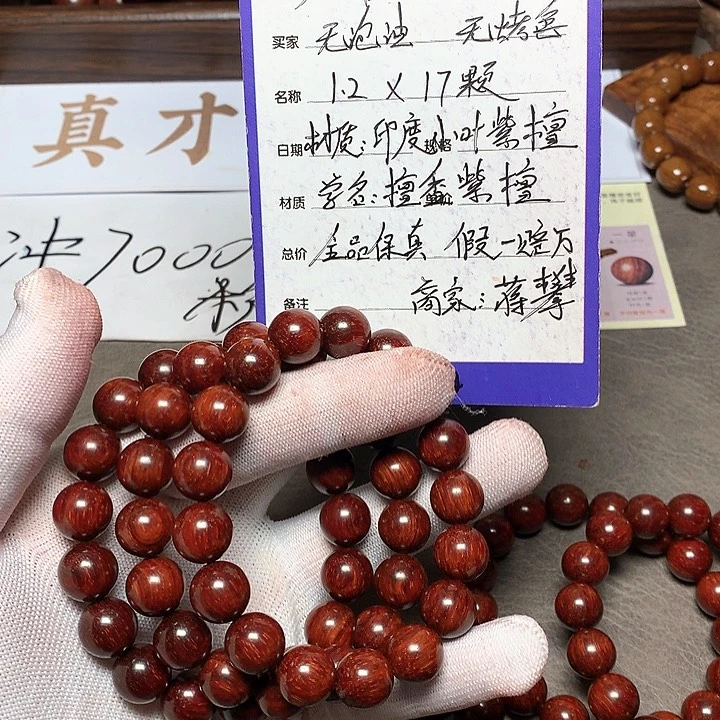 买家 无泡油 无烤色
名称 1.2 X 17颗
日期 材质:印度小叶紫檀
材质 学名:檀香紫檀
总价 全品保真 假一赔万
备注 商家:蒋攀
真才
冲7000